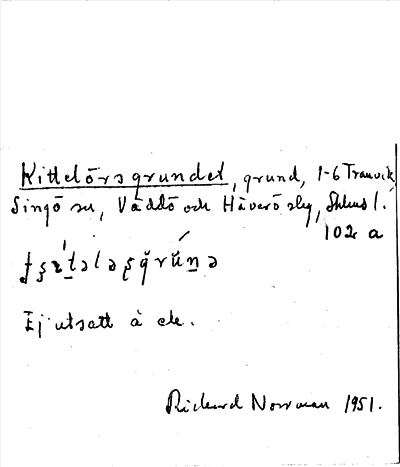 Kittelörsgrundet, grund, 1-6 Tranvik,
Singö sn, Väddö och Häverö slg, Sthlms l.
102 a
Ej utsatt å ek.
Rickard Norrman 1951.